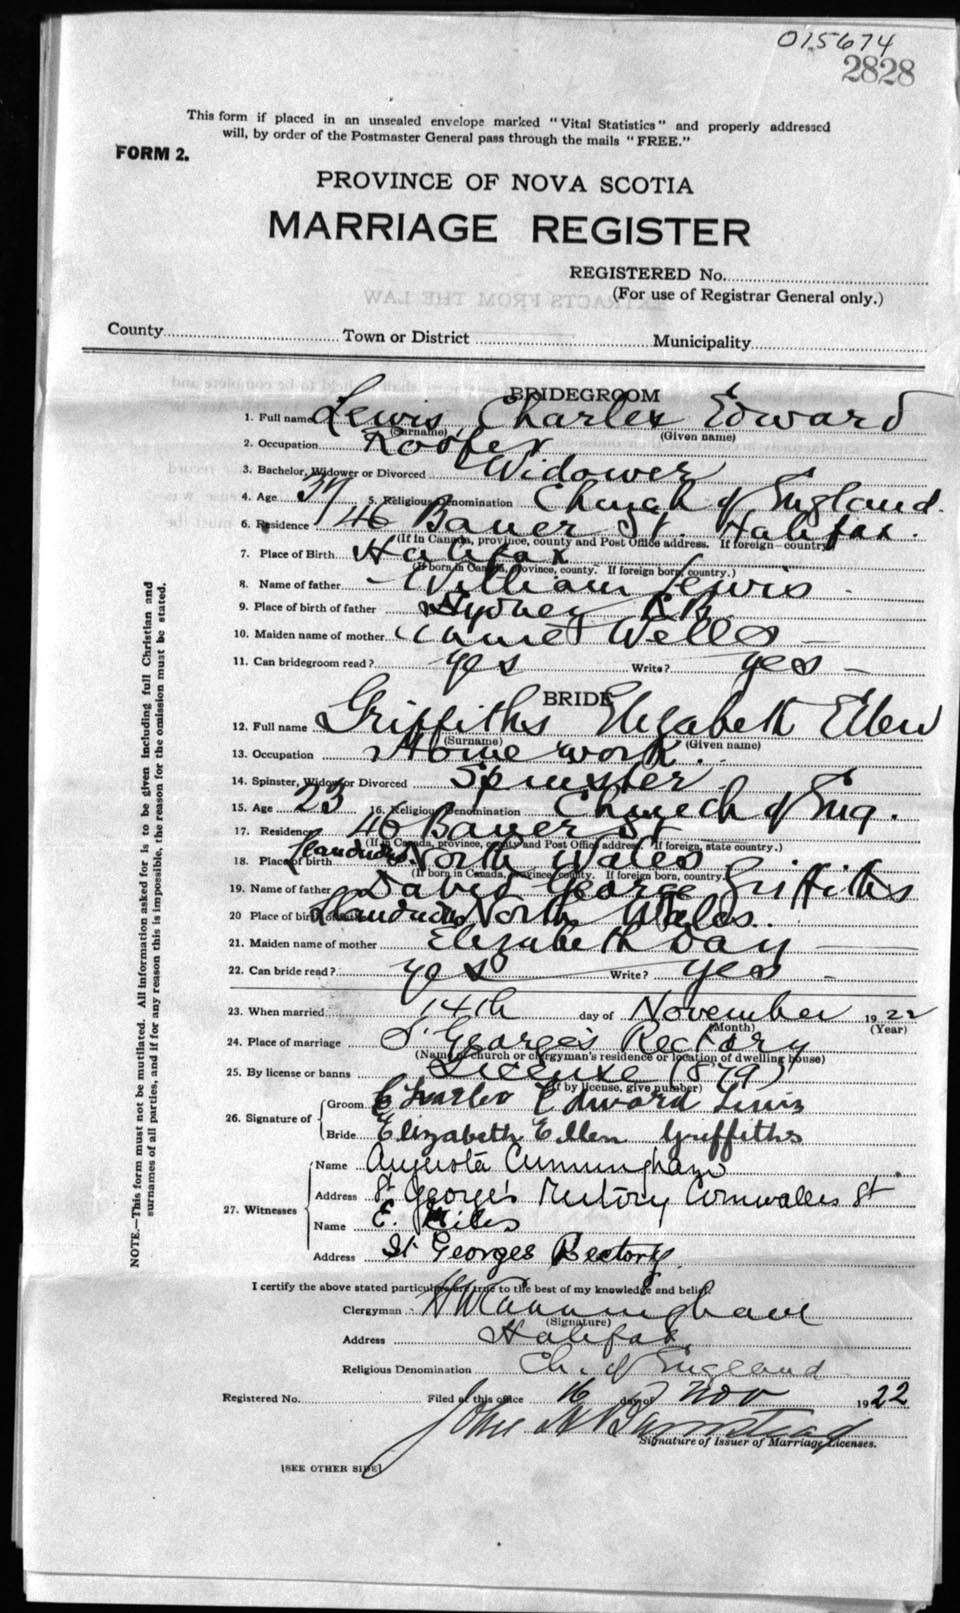 015674
2828
This form if placed in an unsealed envelope marked "Vital Statistics" and properly addressed
will, by order of the Postmaster General pass through the mails "FREE."
FORM 2.
PROVINCE OF NOVA SCOTIA
MARRIAGE REGISTER
REGISTERED No.
(For use of Registrar General only.)
EXTRACTS FROM THE LAW
County Town or District Municipality
BRIDEGROOM
1. Full name Lewis, Charles Edward
(Surname) (Given name)
2. Occupation Roofer
3. Bachelor, Widower or Divorced Widower
4. Age 37 5. Religious Denomination Church of England.
6. Residence 146 Bauer St. Halifax.
(If in Canada, province, county and Post Office address. If foreign country)
7. Place of Birth Halifax
(If born in Canada, province, county. If foreign born, country.)
8. Name of father William Lewis
9. Place of birth of father Sydney
10. Maiden name of mother Wells
11. Can bridegroom read? yes Write? yes
BRIDE
12. Full name Griffiths Elizabeth Ellen
(Surname) (Given name)
13. Occupation Home work.
14. Spinster, Widow or Divorced Spinster
15. Age 23 16. Religious Denomination Church of Eng.
17. Residence 46 Bauer St
(If in Canada, province, county and Post Office address. If foreign, state country.)
18. Place of birth Llandudno North Wales
(If born in Canada, province, county. If foreign born, country.
19. Name of father David George Griffiths
20 Place of birth Llandudno North Wales.
21. Maiden name of mother Elizabeth Day
22. Can bride read? yes Write? yes
23. When married 14th day of November 1922
(Month) (Year)
24. Place of marriage St George's Rectory
(Name of church or clergyman's residence or location of dwelling house)
25. By license or banns License (879)
(If by license, give number)
26. Signature of Groom Charles Edward Lewis
Bride Elizabeth Ellen Griffiths
27. Witnesses Name Augusta Cunningham
Address St George's Rectory Cornwallis St
Name E. Giles
Address St Georges Rectory.
I certify the above stated particulars are true to the best of my knowledge and belief.
Clergyman H W Cunningham
(Signature)
Address Halifax
Religious Denomination Ch. of England
Registered No. Filed at this office 16 day of Nov 1922
John
Signature of Issuer of Marriage Licenses.
[SEE OTHER SIDE]
NOTE.—This form must not be mutilated. All information asked for is to be given including full Christian and
surnames of all parties, and if for any reason this is impossible, the reason for the omission must be stated.